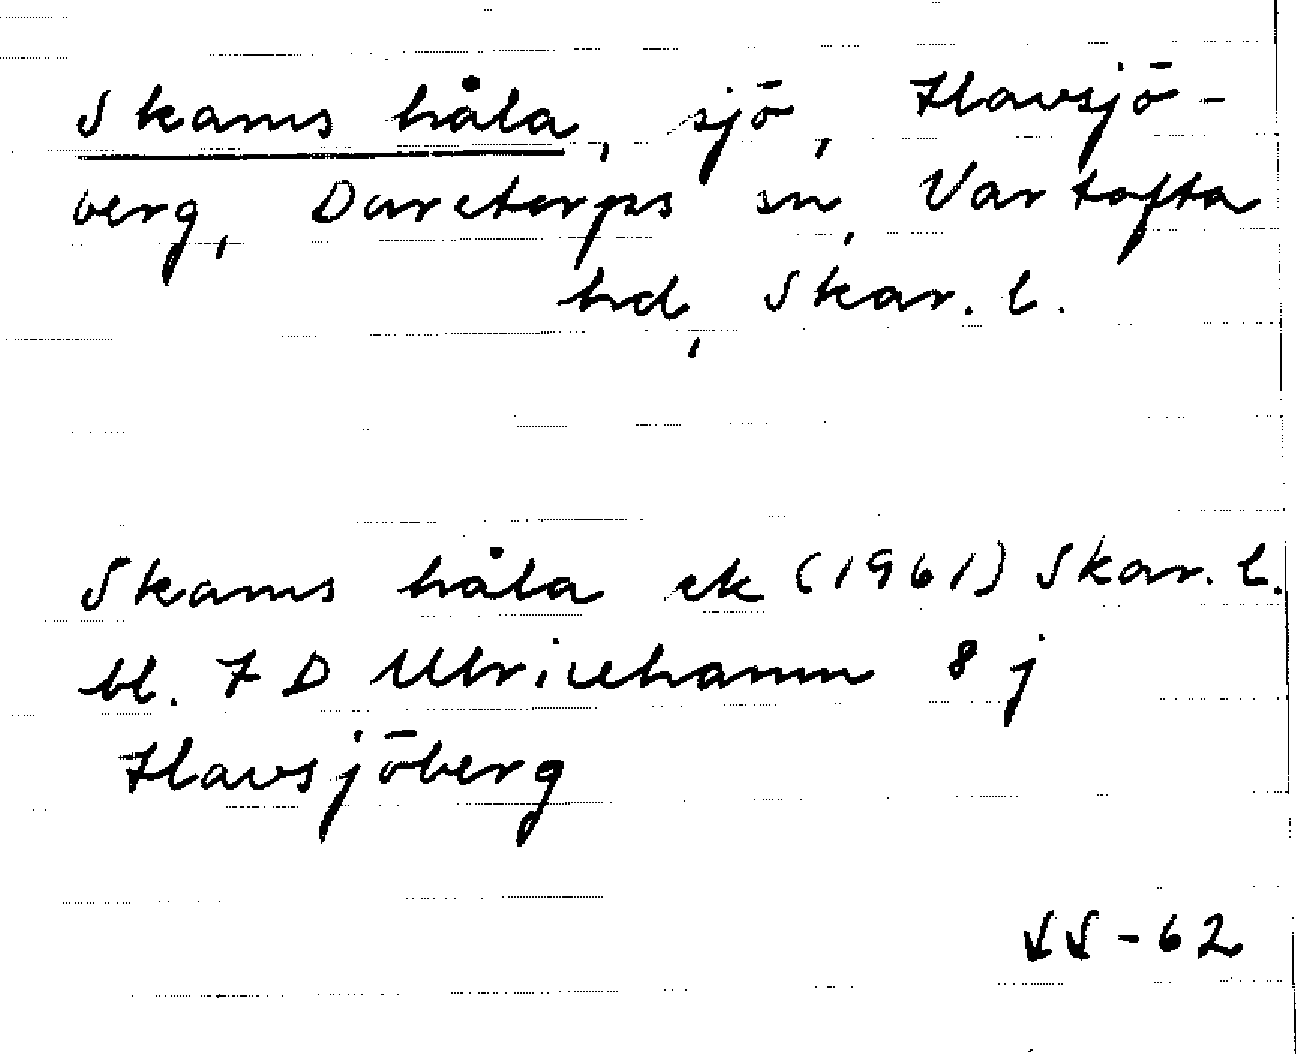 Skams håla, sjö, Havsjö-
berg, Daretorps sn, Vartofta
hd, Skar. l.
Skams håla ek (1961) Skar. l.
bl. 7 D Ulricehamn 8 j
Havsjöberg
SS-62